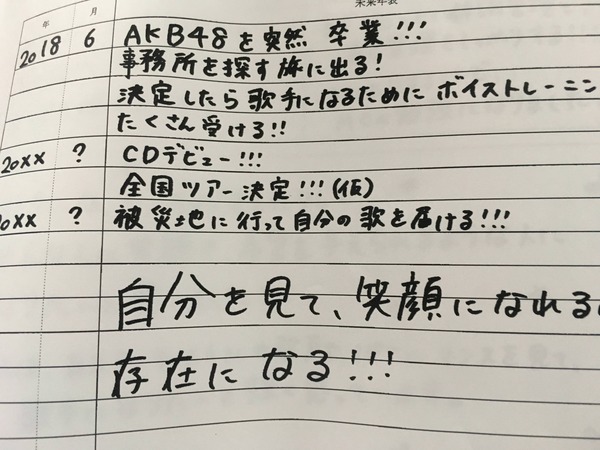 未来年表
年 月
2018 6 AKB48を突然 卒業!!!
事務所を探す旅に出る!
決定したら歌手になるために ボイストレーニン
たくさん受ける!!
20xx ? CDデビュー!!!
全国ツアー決定!!!(仮)
20xx ? 被災地に行って自分の歌を届ける!!!
自分を見て、笑顔になれる
存在になる!!!